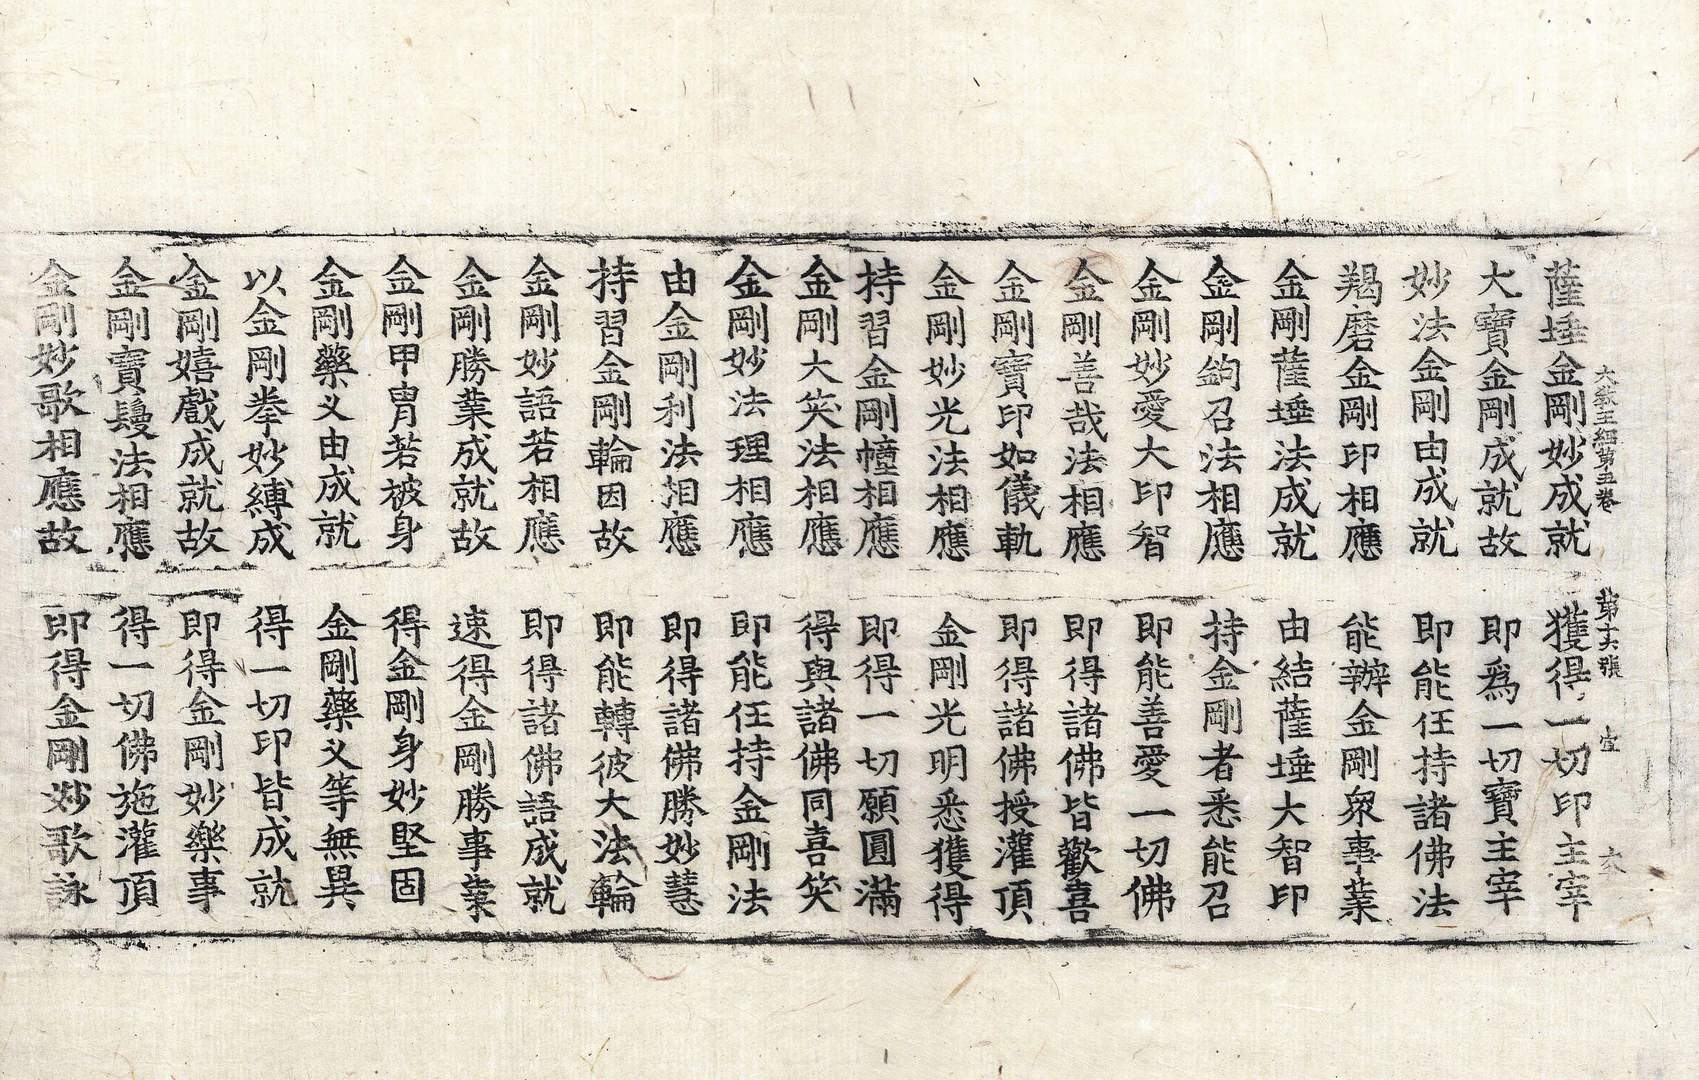 大教王經第五卷　第十六張　六
薩埵金剛妙成就　獲得一切印主宰
大寶金剛成就故　即爲一切寶主宰
妙法金剛由成就　即能任持諸佛法
羯磨金剛印相應　能辦金剛衆事業
金剛薩埵法成就　由結薩埵大智印
金剛鉤召法相應　持金剛者悉能召
金剛妙愛大印智　即能善愛一切佛
金剛善哉法相應　即得諸佛皆歡喜
金剛寶印如儀軌　即得諸佛授灌頂
金剛妙光法相應　金剛光明悉獲得
持習金剛幢相應　即得一切願圓滿
金剛大笑法相應　得與諸佛同喜笑
金剛妙法理相應　即能任持金剛法
由金剛利法相應　即得諸佛勝妙慧
持習金剛輪因故　即能轉彼大法輪
金剛妙語若相應　即得諸佛語成就
金剛勝業成就故　速得金剛勝事業
金剛甲冑若被身　得金剛身妙堅固
金剛藥叉由成就　金剛藥叉等無異
以金剛拳妙縛成　得一切印皆成就
金剛嬉戲成就故　即得金剛妙樂事
金剛寶鬘法相應　得一切佛施灌頂
金剛妙歌相應故　即得金剛妙歌詠